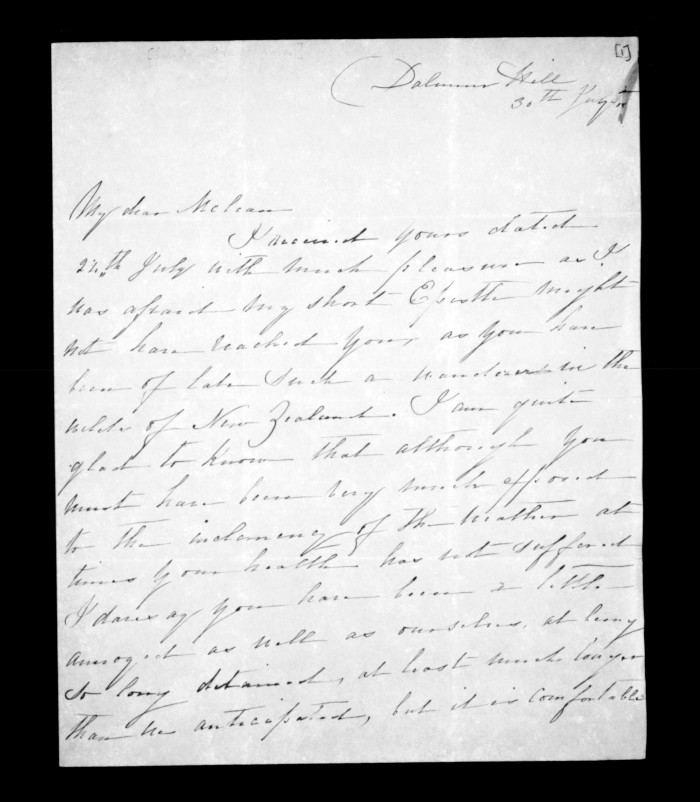 [1]
Hill
30th
My dear McLean
I received yours dated
24th July with much pleasure as I
was afraid my short Epistle might
not have reached you, as you have
been of late such a wanderer in the
wilds of New Zealand. I am quite
glad to know that although you
must have been very much exposed
to the inclemency of the weather at
times your health has not suffered
I daresay you have been a little
annoyed as well as ourselves, at being
so long detained, at least much longer
than we anticipated, but it is comfortable